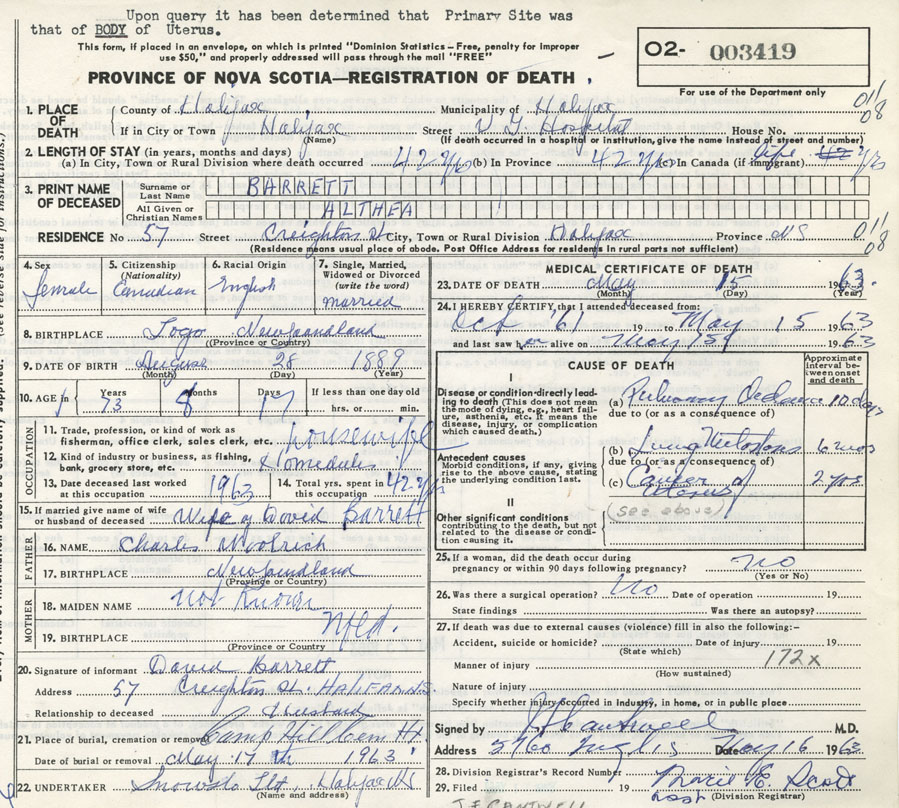 Upon query it has been determined that Primary Site was
that of BODY of Uterus.
This form, if placed in an envelope, on which is printed "Dominion Statistics - Free, penalty for improper
use $50," and properly addressed will pass through the mail "FREE"
O2- 003419
PROVINCE OF NOVA SCOTIA—REGISTRATION OF DEATH
For use of the Department only
1. PLACE OF DEATH
County of Halifax Municipality of Halifax
011 08
If in City or Town Halifax Street V G Hospital House No.
(Name) (If death occurred in a hospital or institution, give the name instead of street and number)
2. LENGTH OF STAY (in years, months and days)
(a) In City, Town or Rural Division where death occurred 42 yrs (b) In Province 42 yrs (c) In Canada (if immigrant) life 42 yrs
3. PRINT NAME OF DECEASED
Surname or Last Name BARRETT
All Given or Christian Names ALTHEA
RESIDENCE No 57 Street Creighton St City, Town or Rural Division Halifax Province NS
011 08
(Residence means usual place of abode. Post Office Address for residents in rural parts not sufficient)
4. Sex female
5. Citizenship (Nationality) Canadian
6. Racial Origin English
7. Single, Married, Widowed or Divorced (write the word) married
8. BIRTHPLACE Fogo Newfoundland
(Province or Country)
9. DATE OF BIRTH 28 1889
(Month) (Day) (Year)
10. AGE in Years 73 Months 8 Days 17 If less than one day old hrs. or min.
OCCUPATION
11. Trade, profession, or kind of work as fisherman, office clerk, sales clerk, etc. housewife
12. Kind of industry or business, as fishing, bank, grocery store, etc.
13. Date deceased last worked at this occupation 1963
14. Total yrs. spent in this occupation 42 yrs
15. If married give name of wife or husband of deceased Wife of David Barrett
FATHER
16. NAME Charles Woolrich
17. BIRTHPLACE Newfoundland
(Province or Country)
MOTHER
18. MAIDEN NAME Not Known
19. BIRTHPLACE Nfld.
(Province or Country)
20. Signature of informant David Barrett
Address 57 Creighton St. HALIFAX N.S.
Relationship to deceased Husband
21. Place of burial, cremation or removal Camp Hill Cem Hx
Date of burial or removal May 17th 1963
22. UNDERTAKER Snows Ltd, Halifax NS
(Name and address)
MEDICAL CERTIFICATE OF DEATH
23. DATE OF DEATH May 15 1963.
(Month) (Day) (Year)
24. I HEREBY CERTIFY, that I attended deceased from:
Oct 61 19 to May 15 1963
and last saw her alive on May 15 1963
CAUSE OF DEATH
Approximate interval between onset and death
I
Disease or condition directly leading to death (This does not mean the mode of dying, e.g., heart failure, asthenia, etc. It means the disease, injury, or complication which caused death.)
(a) Pulmonary Oedema 10 days
due to (or as a consequence of)
Antecedent causes
Morbid conditions, if any, giving rise to the above cause, stating the underlying condition last.
(b) Lung Metastases 6 mos
due to (or as a consequence of)
(c) Cancer of Uterus 2 yrs
(see above)
II
Other significant conditions contributing to the death, but not related to the disease or condition causing it.
25. If a woman, did the death occur during pregnancy or within 90 days following pregnancy? No
(Yes or No)
26. Was there a surgical operation? No Date of operation 19
State findings Was there an autopsy?
27. If death was due to external causes (violence) fill in also the following:-
Accident, suicide or homicide? Date of injury 19
(State which)
Manner of injury 172x
(How sustained)
Nature of injury
Specify whether injury occurred in industry, in home, or in public place
Signed by J F Cantwell M.D.
Address 5760 Inglis Date May 16 1963
28. Division Registrar's Record Number
29. Filed 19 Marie E. Scott
(Division Registrar)
J.F. CANTWELL